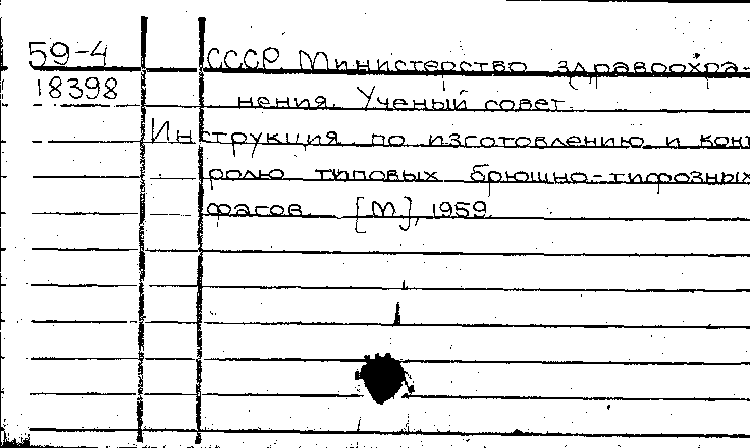 59-4 СССР. Министерство здравоохра-
18398 нения. Ученый совет.
Инструкция по изготовлению и конт
ролю типовых брюшно-тифозных
фагов. [М], 1959.